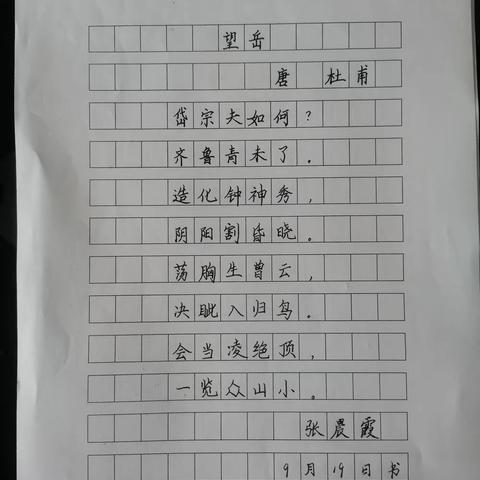 望岳
唐 杜甫
岱宗夫如何?
齐鲁青未了。
造化钟神秀,
阴阳割昏晓。
荡胸生曾云,
决眦入归鸟。
会当凌绝顶,
一览众山小。
张晨霞
9月19日书